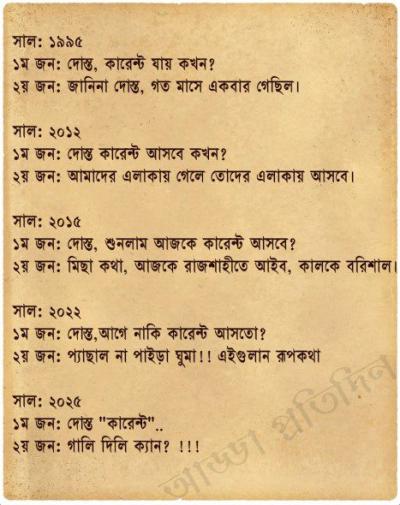 সাল: ১৯৯৫
১ম জন: দোস্ত, কারেন্ট যায় কখন?
২য় জন: জানিনা দোস্ত, গত মাসে একবার গেছিল।
সাল: ২০১২
১ম জন: দোস্ত কারেন্ট আসবে কখন?
২য় জন: আমাদের এলাকায় গেলে তোদের এলাকায় আসবে।
সাল: ২০১৫
১ম জন: দোস্ত, শুনলাম আজকে কারেন্ট আসবে?
২য় জন: মিছা কথা, আজকে রাজশাহীতে আইব, কালকে বরিশাল।
সাল: ২০২২
১ম জন: দোস্ত,আগে নাকি কারেন্ট আসতো?
২য় জন: প্যাছাল না পাইড়া ঘুমা!! এইগুলান রূপকথা
সাল: ২০২৫
১ম জন: দোস্ত "কারেন্ট"..
২য় জন: গালি দিলি ক্যান? !!!
আড্ডা প্রতিদিন